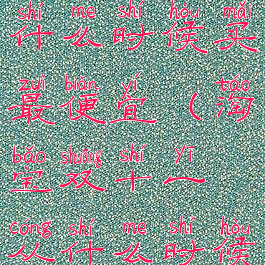 shí me shí hòu mǎi
什么时候买
zuì biàn yí (táo
最便宜(淘
bǎo shuāng shí yī
宝双十一
cóng shí me shí hòu
从什么时候